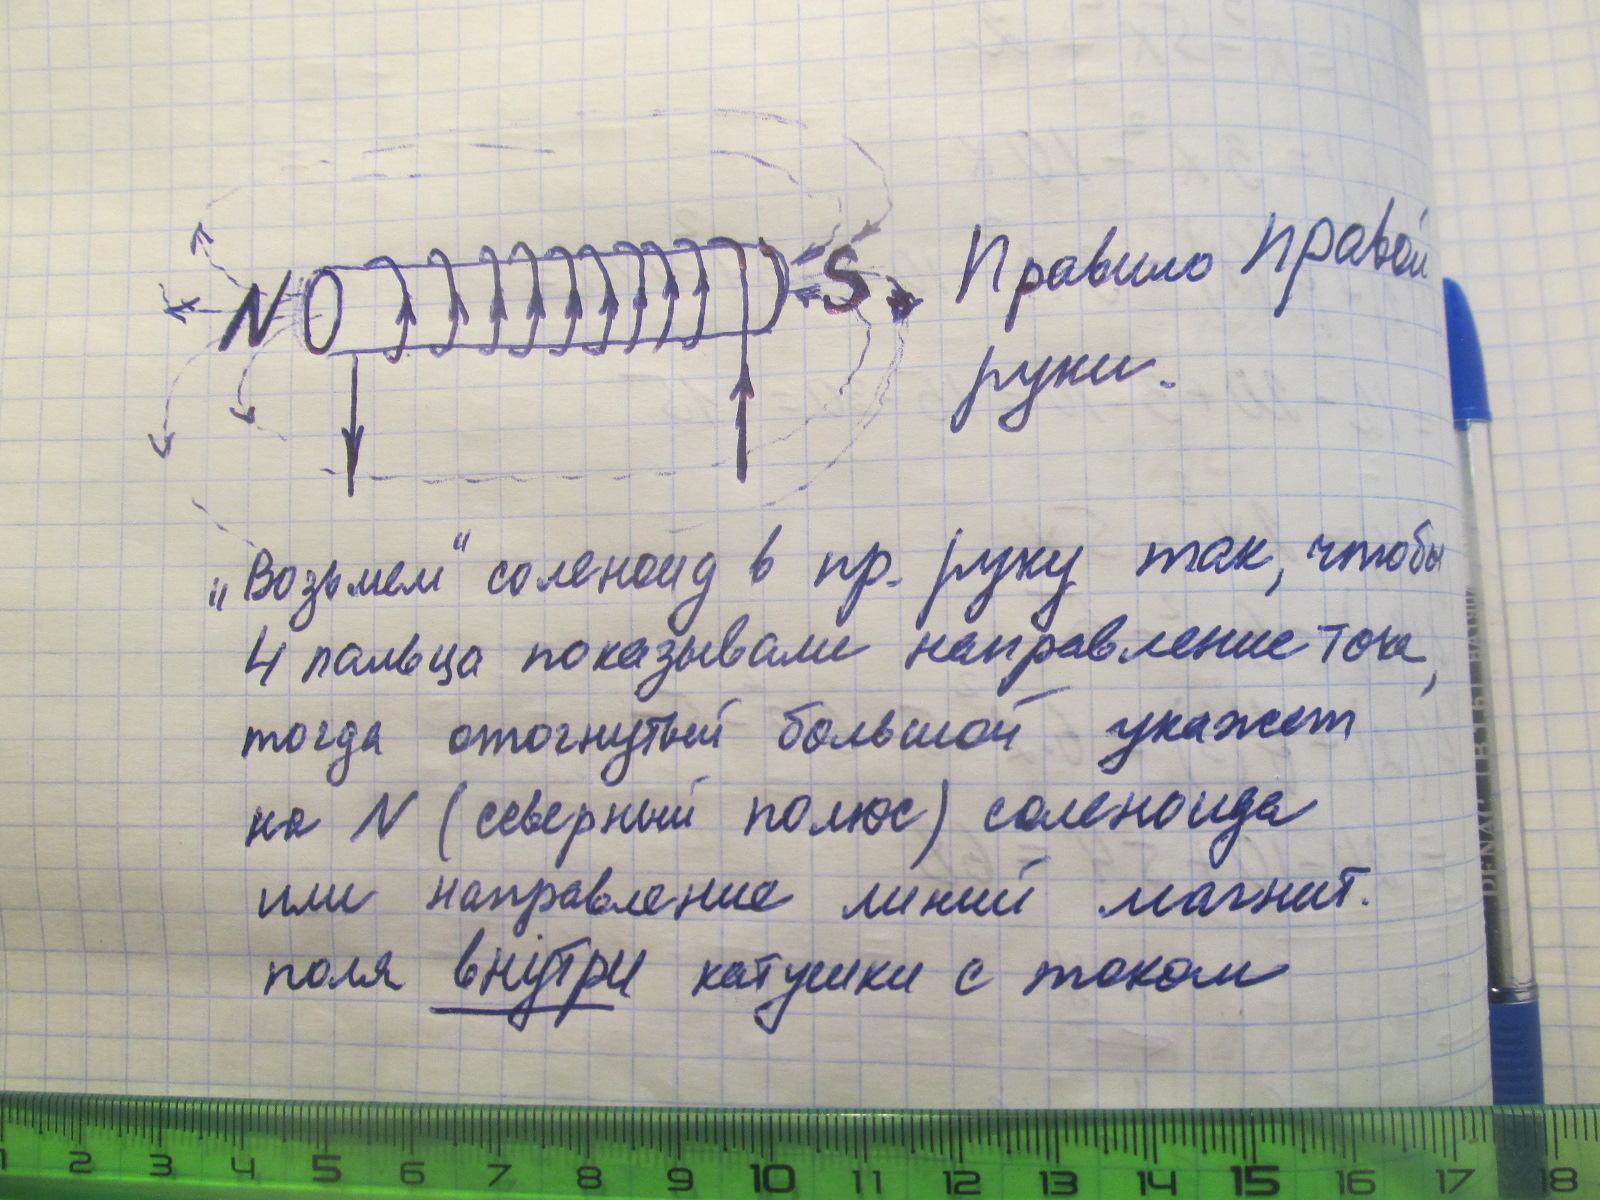 N
S
Правило правой
руки.
„Возьмем" соленоид в пр. руку так, чтобы
4 пальца показывали направление тока,
тогда отогнутый большой укажет
на N (северный полюс) соленоида
или направление линий магнит.
поля внутри катушки с током
1 2 3 4 5 6 7 8 9 10 11 12 13 14 15 16 17 18